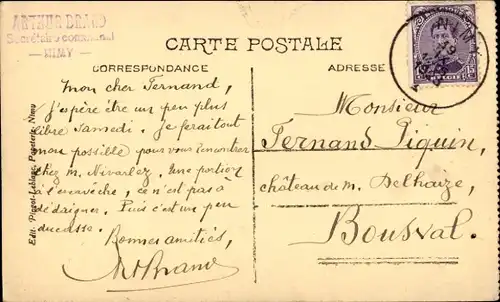 ARTHUR BRAND
Secrétaire communal
— NIMY —
NIMY
BELGIË
CARTE POSTALE
CORRESPONDANCE
ADRESSE
Mon cher Fernand,
J'espère être un peu plus
libre samedi. Je ferai tout
mon possible pour vous rencontrer
chez M. Nivarlez. Une portion
d'escavèche, ce n'est pas à
dédaigner. Puis c'est un peu
ducasse.
Bonnes amitiés,
ArtBrand
Monsieur
Fernand Piquin,
château de M. Delhaize,
Bousval.
Edit. Papeterie, Nimy